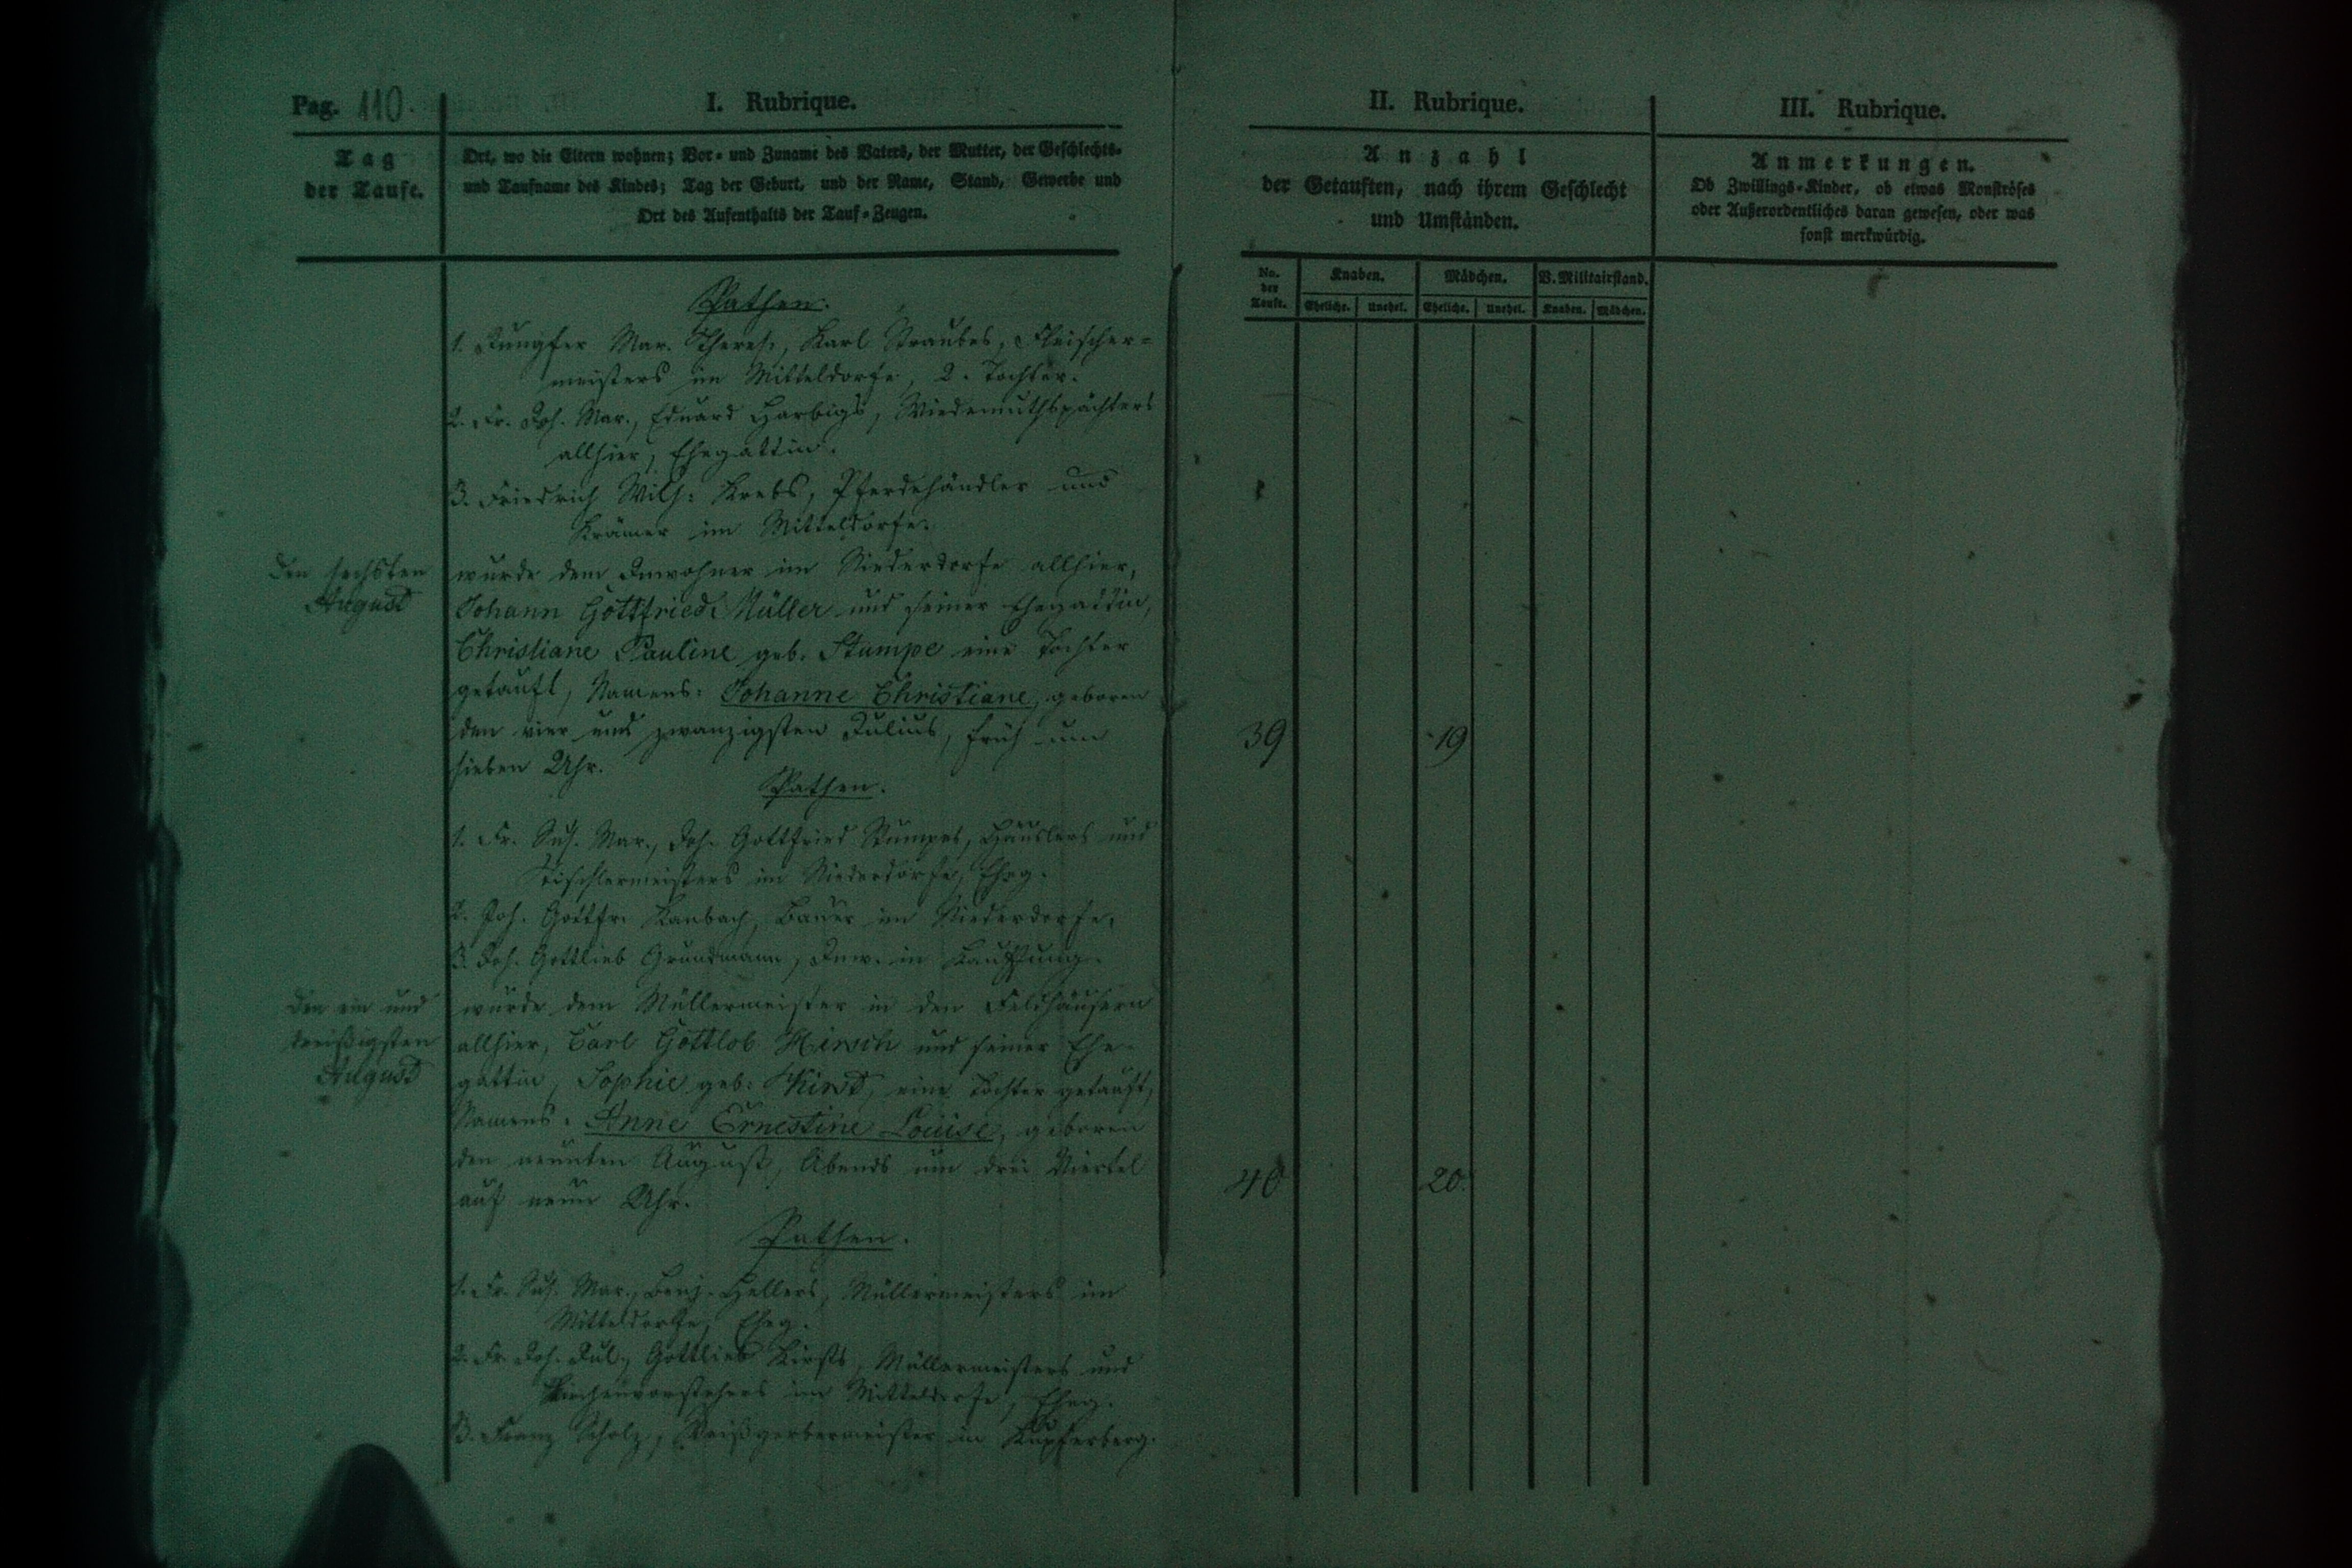 Pag. 110.
I. Rubrique.
Tag
der Taufe.
Ort, wo die Eltern wohnen; Vor- und Zuname des Vaters, der Mutter, der Geschlechts-
und Taufname des Kindes; Tag der Geburt, und der Name, Stand, Gewerbe und
Ort des Aufenthalts der Tauf-Zeugen.
Pathen.
1. Jungfer Mar. Theres., Karl Straubes, Fleischer-
meisters im Mitteldorfe, 2. Tochter.
2. Fr. Joh. Mar., Eduard Harbigs, Wiedemuthspächters
allhier, Ehegattin.
3. Friedrich Wilh: Krebs, Pferdehändler und
Krämer im Mitteldorfe.
Den sechsten
August
wurde dem Inwohner im Niederdorfe allhier,
Johann Gottfried Müller und seiner Ehegattin,
Christiane Pauline geb. Stumpe eine Tochter
getauft, Namens: Johanne Christiane, geboren
den vier und zwanzigsten Julius, früh um
sieben Uhr.
Pathen.
1. Fr. Sus. Mar., Joh. Gottfried Stumpes, Häuslers und
Tischlermeisters im Niederdorfe, Eheg.
2. Joh. Gottfr. Kanbach, Bauer im Niederdorfe.
3. Joh. Gottlieb Grundmann, Inw. in Kauffung.
Den ein und
dreißigsten
August
wurde dem Müllermeister in den Feldhäusern
allhier, Carl Gottlob Hirsch und seiner Ehe-
gattin, Sophie geb: Kirst, eine Tochter getauft,
Namens: Anne Ernestine Louise, geboren
den neunten August, Abends um drei Viertel
auf neun Uhr.
Pathen.
1. Fr. Sus. Mar., Benj. Hellers, Müllermeisters im
Mitteldorfe, Eheg.
2. Fr. Joh. Jul., Gottlieb Kirsts, Müllermeisters und
Kirchenvorstehers im Mitteldorfe, Eheg.
3. Franz Scholz, Weißgerbermeister in Kupferberg.
II. Rubrique.
Anzahl
der Getauften, nach ihrem Geschlecht
und Umständen.
No.
der
Taufe.
Knaben. Mädchen. V. Militairstand.
Eheliche. Unehel. Eheliche. Unehel. Knaben. Mädchen.
39 19
40 20.
III. Rubrique.
Anmerkungen.
Ob Zwillings-Kinder, ob etwas Monströses
oder Außerordentliches daran gewesen, oder was
sonst merkwürdig.